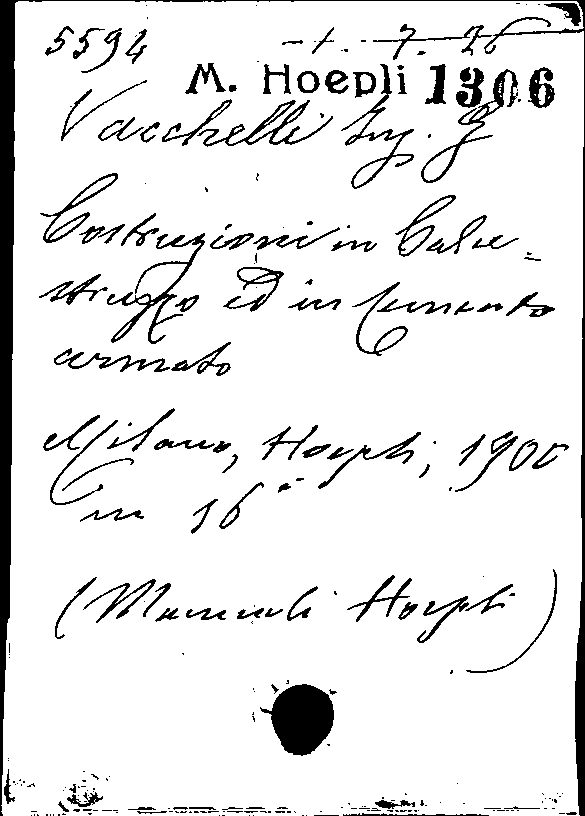 5594 - 1. 7. 26
M. Hoepli 1306
Vacchelli Ing. G
Costruzioni in Calce-
struzzo ed in Cemento
armato
Milano, Hoepli, 1900
in 16°
(Manuali Hoepli)